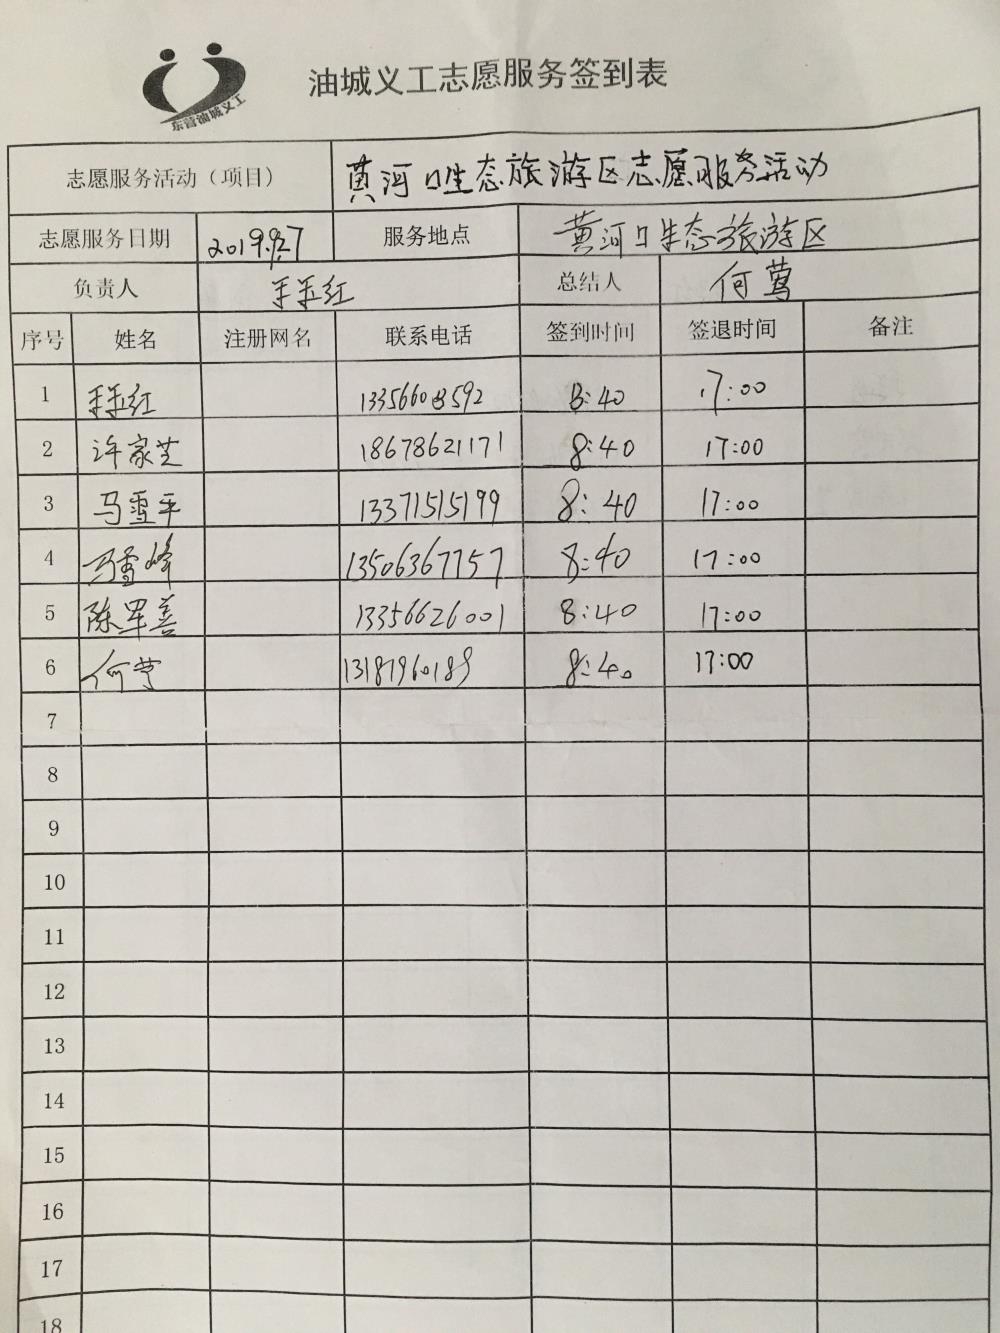 东营油城义工
油城义工志愿服务签到表
志愿服务活动（项目） 黄河口生态旅游区志愿服务活动
志愿服务日期 2019.9.27 服务地点 黄河口生态旅游区
负责人 王玉红 总结人 何莺
序号 姓名 注册网名 联系电话 签到时间 签退时间 备注
1 王玉红 13356608592 8:40 17:00
2 许家芝 18678621171 8:40 17:00
3 马雪平 13371515199 8:40 17:00
4 马雪峰 13506367757 8:40 17:00
5 陈军善 13356626001 8:40 17:00
6 何莺 13187960189 8:40 17:00
7
8
9
10
11
12
13
14
15
16
17
18